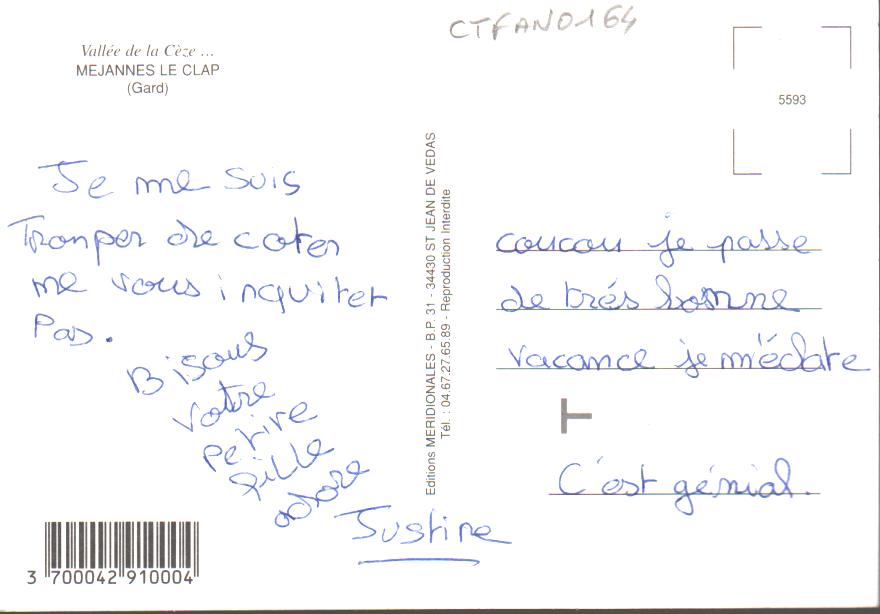 CTFAN0164
Vallée de la Cèze ...
MEJANNES LE CLAP
(Gard)
5593
Je me suis
Tromper de coter
ne vous inquiter
Pas.
Bisous
Votre
petite
fille
adore
Justine
Editions MERIDIONALES - B.P. 31 - 34430 ST JEAN DE VEDAS
Tél. : 04.67.27.65.89 - Reproduction Interdite
coucou je passe
de trés bonne
vacance je m'éclate
C'est génial.
3 700042 910004